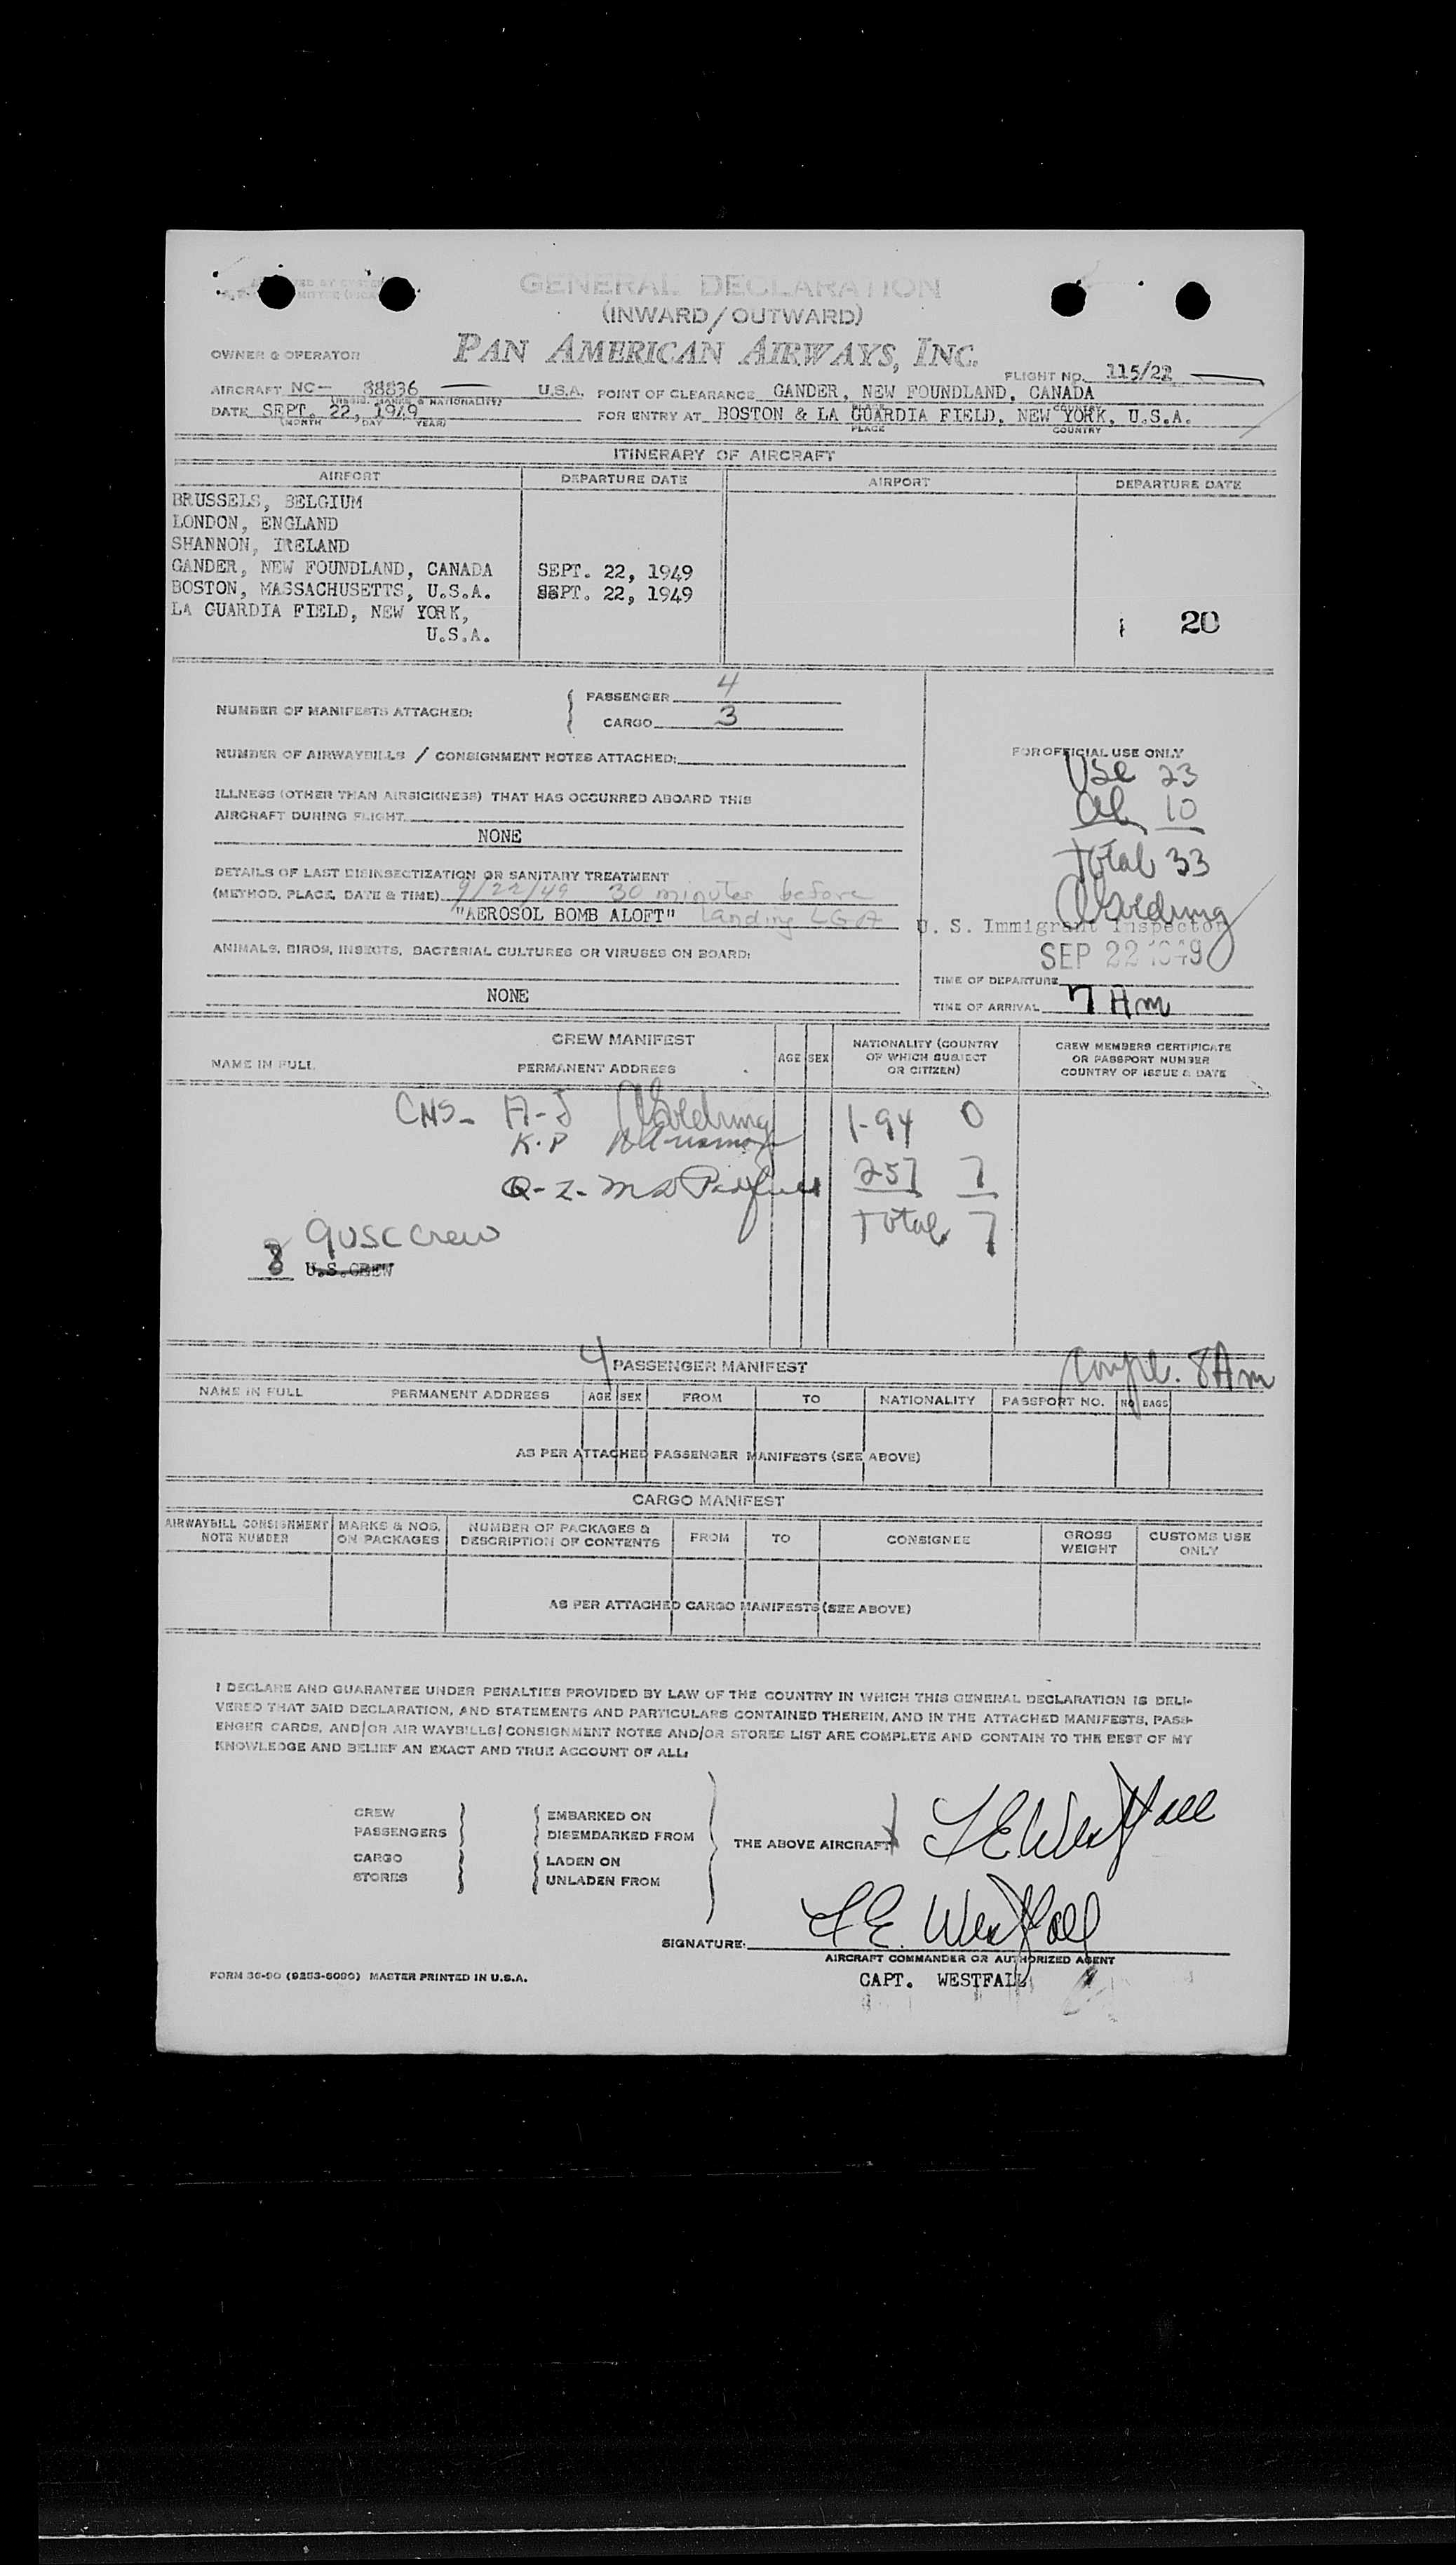 GENERAL DECLARATION
(INWARD/OUTWARD)
OWNER & OPERATOR PAN AMERICAN AIRWAYS, INC.
FLIGHT NO. 115/22
AIRCRAFT NC- 88836 U.S.A. POINT OF CLEARANCE GANDER, NEW FOUNDLAND, CANADA
(REGIS. MARKS & NATIONALITY)
DATE SEPT. 22, 1949 FOR ENTRY AT BOSTON & LA GUARDIA FIELD, NEW YORK, U.S.A.
(MONTH DAY YEAR) PLACE COUNTRY
ITINERARY OF AIRCRAFT
AIRPORT DEPARTURE DATE AIRPORT DEPARTURE DATE
BRUSSELS, BELGIUM
LONDON, ENGLAND
SHANNON, IRELAND
GANDER, NEW FOUNDLAND, CANADA SEPT. 22, 1949
BOSTON, MASSACHUSETTS, U.S.A. SEPT. 22, 1949
LA GUARDIA FIELD, NEW YORK,
U.S.A. 20
NUMBER OF MANIFESTS ATTACHED: PASSENGER 4
CARGO 3
NUMBER OF AIRWAYBILLS / CONSIGNMENT NOTES ATTACHED:
FOR OFFICIAL USE ONLY
USC 23
al 10
Total 33
ILLNESS (OTHER THAN AIRSICKNESS) THAT HAS OCCURRED ABOARD THIS
AIRCRAFT DURING FLIGHT
NONE
DETAILS OF LAST DISINSECTIZATION OR SANITARY TREATMENT
(METHOD, PLACE, DATE & TIME) 9/22/49 30 minutes before
"AEROSOL BOMB ALOFT" landing LGA
U. S. Immigrant Inspector
SEP 22 1949
ANIMALS, BIRDS, INSECTS, BACTERIAL CULTURES OR VIRUSES ON BOARD:
NONE
TIME OF DEPARTURE
TIME OF ARRIVAL 7 Am
CREW MANIFEST
NAME IN FULL PERMANENT ADDRESS AGE SEX NATIONALITY (COUNTRY OF WHICH SUBJECT OR CITIZEN) CREW MEMBERS CERTIFICATE OR PASSPORT NUMBER COUNTRY OF ISSUE & DATE
CNS- A-J 1-94 0
K.P
Q-Z- 257 7
Total 7
9 USC Crew
8 U.S.CREW
4 PASSENGER MANIFEST Compl. 8Am
NAME IN FULL PERMANENT ADDRESS AGE SEX FROM TO NATIONALITY PASSPORT NO. NO BAGS
AS PER ATTACHED PASSENGER MANIFESTS (SEE ABOVE)
CARGO MANIFEST
AIRWAYBILL CONSIGNMENT NOTE NUMBER MARKS & NOS. ON PACKAGES NUMBER OF PACKAGES & DESCRIPTION OF CONTENTS FROM TO CONSIGNEE GROSS WEIGHT CUSTOMS USE ONLY
AS PER ATTACHED CARGO MANIFESTS (SEE ABOVE)
I DECLARE AND GUARANTEE UNDER PENALTIES PROVIDED BY LAW OF THE COUNTRY IN WHICH THIS GENERAL DECLARATION IS DELI-
VERED THAT SAID DECLARATION, AND STATEMENTS AND PARTICULARS CONTAINED THEREIN, AND IN THE ATTACHED MANIFESTS, PASS-
ENGER CARDS, AND/OR AIR WAYBILLS/CONSIGNMENT NOTES AND/OR STORES LIST ARE COMPLETE AND CONTAIN TO THE BEST OF MY
KNOWLEDGE AND BELIEF AN EXACT AND TRUE ACCOUNT OF ALL:
CREW EMBARKED ON
PASSENGERS DISEMBARKED FROM
THE ABOVE AIRCRAFT F E Westfall
CARGO LADEN ON
STORES UNLADEN FROM
SIGNATURE: F E. Westfall
AIRCRAFT COMMANDER OR AUTHORIZED AGENT
FORM 36-90 (9253-6090) MASTER PRINTED IN U.S.A.
CAPT. WESTFALL